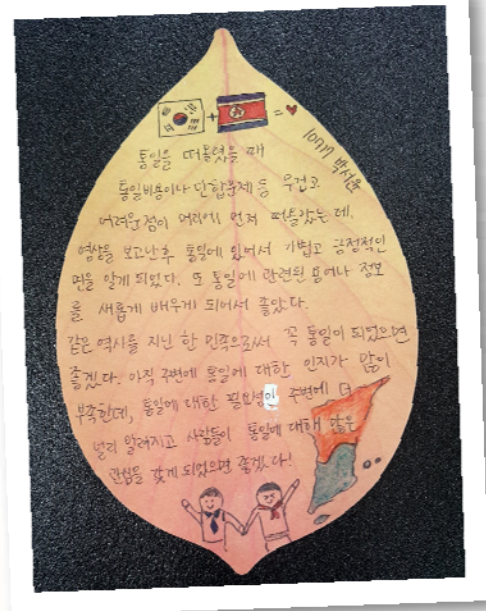 + = ♥
10717 박서윤
통일을 떠올렸을 때
통일비용이나 단합문제 등 무겁고
어려운 점이 머리에 먼저 떠올랐는데,
영상을 보고난후 통일에 있어서 가볍고 긍정적인
면을 알게 되었다. 또 통일에 관련된 용어나 정보
를 새롭게 배우게 되어서 좋았다.
같은 역사를 지닌 한 민족으로써 꼭 통일이 되었으면
좋겠다. 아직 주변에 통일에 대한 인지가 많이
부족한데, 통일에 대한 필요성이 주변에 더
널리 알려지고 사람들이 통일에 대해 많은
관심을 갖게 되었으면 좋겠다!